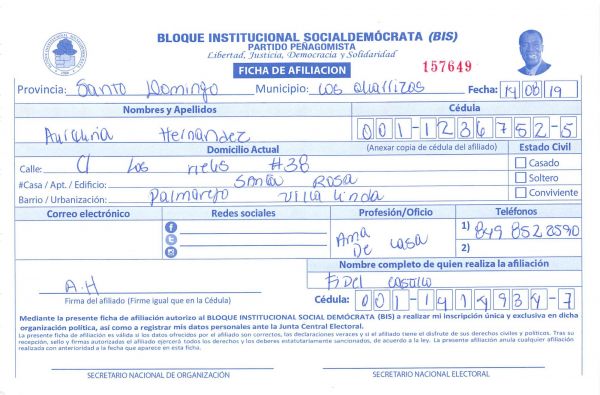 BLOQUE INSTITUCIONAL SOCIALDEMÓCRATA (BIS)
PARTIDO PEÑAGOMISTA
Libertad, Justicia, Democracia y Solidaridad
FICHA DE AFILIACION
157649
Provincia: Santo Domingo Municipio: Los Alcarrizos Fecha: 14/08/19
Nombres y Apellidos Cédula
Hernández 001-1236752-5
Domicilio Actual (Anexar copia de cédula del afiliado) Estado Civil
Calle: C/ Los rieles #38 Casado
#Casa / Apt. / Edificio: Santa Rosa Soltero
Barrio / Urbanización: Palmarejo Villa Linda Conviviente
Correo electrónico Redes sociales Profesión/Oficio Teléfonos
Ama De casa 1) 849 852 2590
2)
Nombre completo de quien realiza la afiliación
A.H Fidel Castillo
Firma del afiliado (Firme igual que en la Cédula) Cédula: 001-1414934-7
Mediante la presente ficha de afiliación autorizo al BLOQUE INSTITUCIONAL SOCIAL DEMÓCRATA (BIS) a realizar mi inscripción única y exclusiva en dicha
organización política, así como a registrar mis datos personales ante la Junta Central Electoral.
La presente ficha de afiliación es válida si los datos ofrecidos por el afiliado son correctos, las declaraciones veraces y si el afiliado tiene el disfrute de sus derechos civiles y políticos. Tras su
recepción, sello y firmas autorizadas el afiliado ejercerá todos los derechos y los deberes estatutariamente sancionados, de acuerdo a la ley. La presente afiliación anula cualquier afiliación
realizada con anterioridad a la fecha que aparece en esta ficha.
SECRETARIO NACIONAL DE ORGANIZACIÓN SECRETARIO NACIONAL ELECTORAL